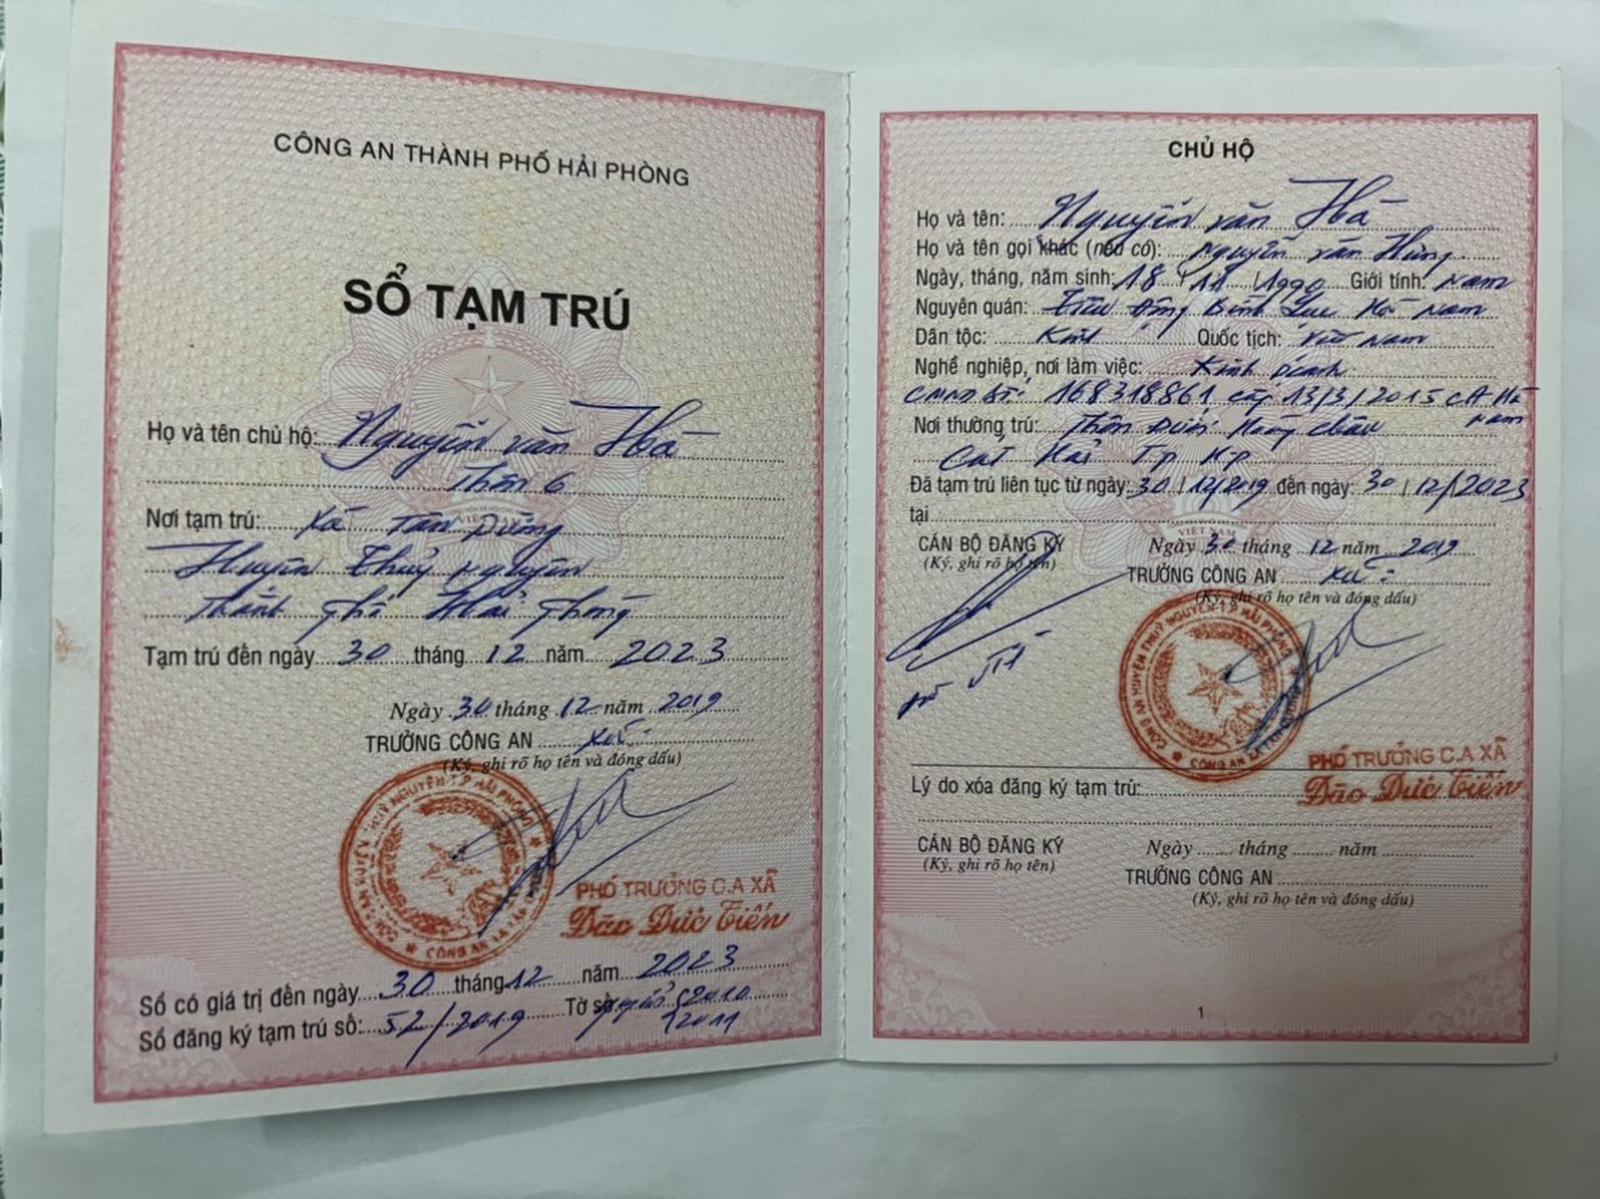 CÔNG AN THÀNH PHỐ HẢI PHÒNG
SỔ TẠM TRÚ
Họ và tên chủ hộ: Nguyễn văn Hà
Thôn 6
Nơi tạm trú: Xã Tân Dương
Huyện Thuỷ Nguyên
Thành phố Hải Phòng
Tạm trú đến ngày 30 tháng 12 năm 2023
Ngày 30 tháng 12 năm 2019
TRƯỞNG CÔNG AN xã
(Ký, ghi rõ họ tên và đóng dấu)
PHÓ TRƯỞNG C.A XÃ
Đào Đức Tiến
Sổ có giá trị đến ngày 30 tháng 12 năm 2023
Sổ đăng ký tạm trú số: 52/2019 Tờ số 2010
2011
CHỦ HỘ
Họ và tên: Nguyễn văn Hà
Họ và tên gọi khác (nếu có): Nguyễn văn Hùng
Ngày, tháng, năm sinh: 18 / 11 / 1990 Giới tính: Nam
Nguyên quán: Bình Lục Hà Nam
Dân tộc: Kinh Quốc tịch: Việt Nam
Nghề nghiệp, nơi làm việc: Kinh doanh
CMND số: 168318861 cấp 13/3/2015 CA Hà
Nam
Nơi thường trú: Thôn Dưới Hoàng Châu
Cát Hải Tp Hp
Đã tạm trú liên tục từ ngày: 30 / 12/2019 đến ngày: 30 / 12/2023
tại
CÁN BỘ ĐĂNG KÝ
(Ký, ghi rõ họ tên)
Ngày 30 tháng 12 năm 2019
TRƯỞNG CÔNG AN xã
(Ký, ghi rõ họ tên và đóng dấu)
PHÓ TRƯỞNG C.A XÃ
Đào Đức Tiến
Lý do xóa đăng ký tạm trú:
CÁN BỘ ĐĂNG KÝ
(Ký, ghi rõ họ tên)
Ngày tháng năm
TRƯỞNG CÔNG AN
(Ký, ghi rõ họ tên và đóng dấu)
1